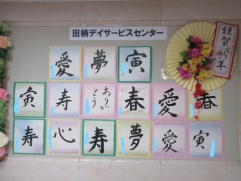 田柄デイサービスセンター
愛 夢 寅
寅 寿 ありがとう 春 愛 春
寿 心 寿 夢 愛 寅
謹賀新年